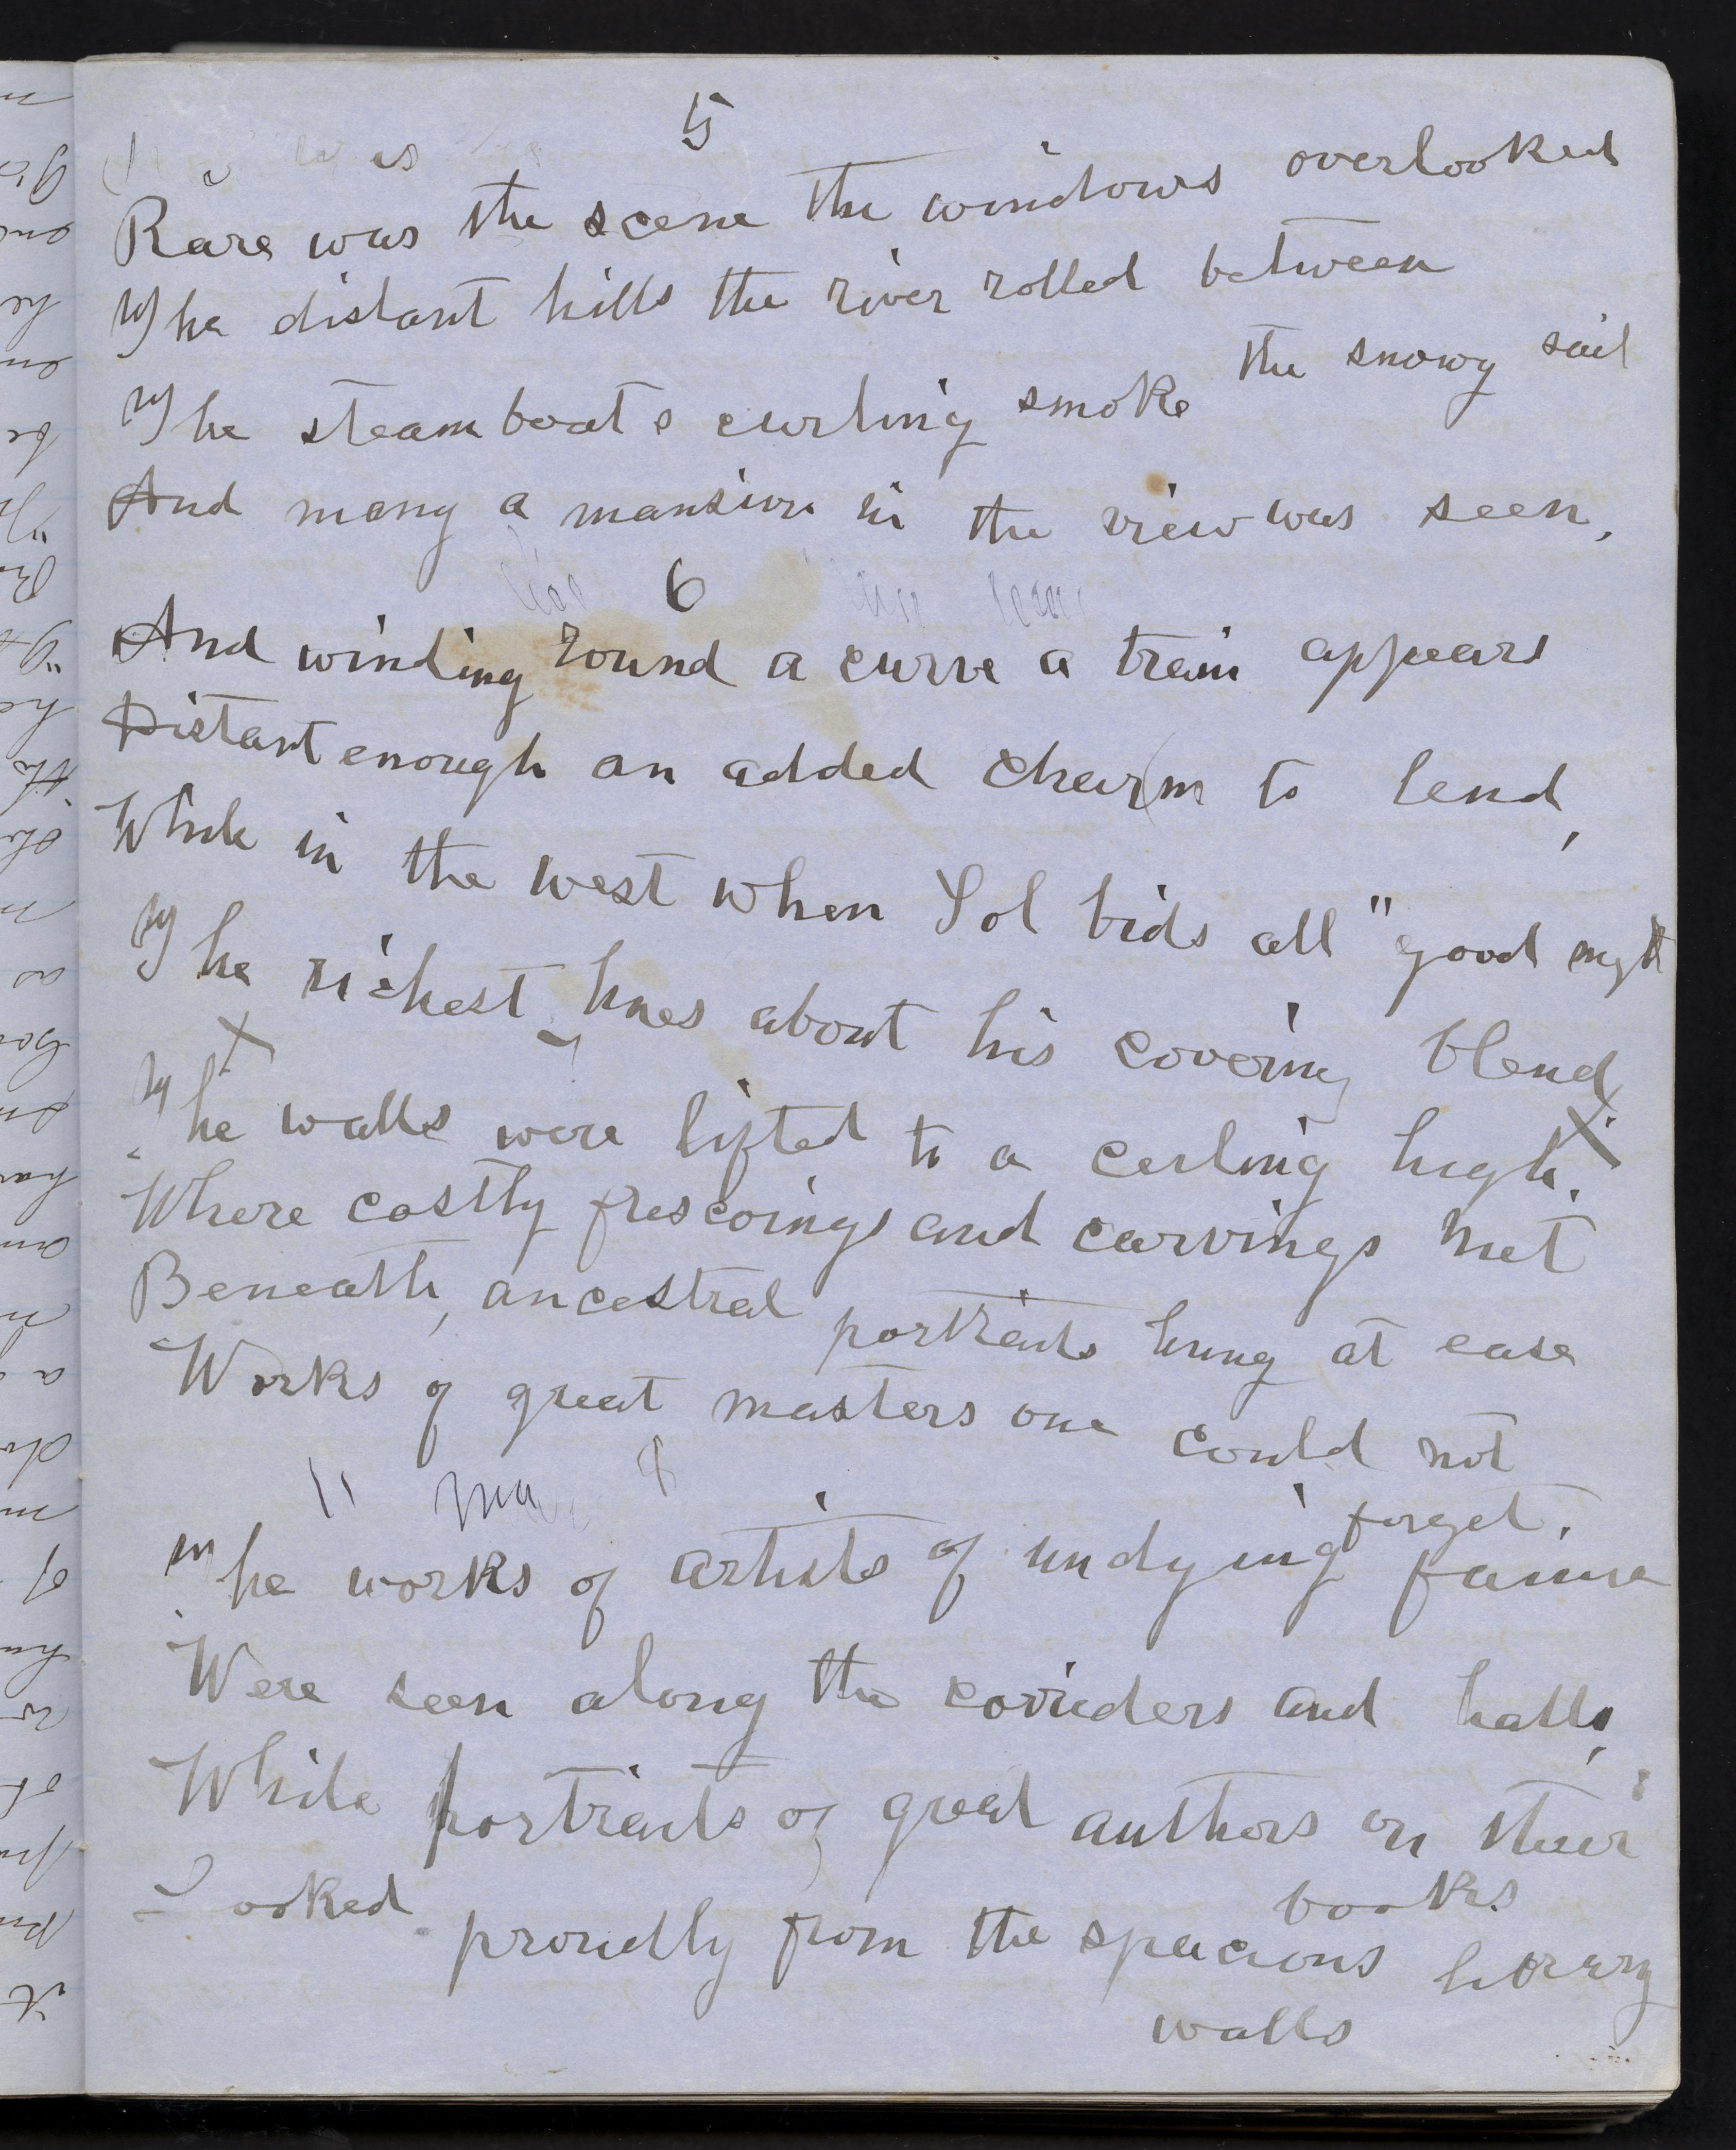 5
Rare was the scene the windows overlooked
The distant hills the river rolled between
The steamboats curling smoke the snowy sail
And many a mansion in the view was seen,
6
And winding round a curve a train appears
Distant enough an added charm to lend,
While in the west when Sol bids all "good night
The richest hues about his covering blend
X
The walls were lifted to a ceiling high. X
Where costly frescoings and carvings met
Beneath, ancestral portraits hung at ease
Works of great masters one could not
forget.
8
The works of artists of undying fame
Were seen along the corriders and halls,
While portraits of great authors on their
books
Looked proudly from the spacious library
walls